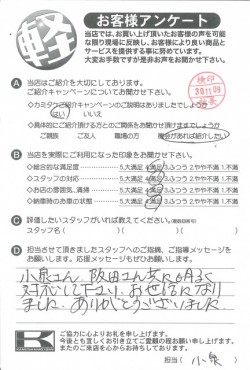 軽
お客様アンケート
当店では、お買い上げ頂いたお客様の声を可能
な限り現場に反映し、お客様により良い商品と
サービスを提供する事に努めています。
大変お手数ですが是非お声をお聞かせ下さい。
検印
30.11.09
A 当店はご紹介を大切にしております。
ご紹介キャンペーンについてお聞かせ下さい。
◇カミタウンご紹介キャンペーンのご説明はありましたでしょうか
はい いいえ
◇具体的にご紹介頂ける方とのご関係をお聞かせ頂けますでしょうか
ご親族 ご友人 職場の方 機会があれば紹介したい
B 当店を実際にご利用になった印象をお聞かせ下さい。
◇総合的な満足度 5.大満足 4.満足 3.ふつう 2.やや不満 1.不満
◇スタッフの対応 5.大満足 4.満足 3.ふつう 2.やや不満 1.不満
◇お店の雰囲気、清掃 5.大満足 4.満足 3.ふつう 2.やや不満 1.不満
◇納車時のお車の状態 5.大満足 4.満足 3.ふつう 2.やや不満 1.不満
C 評価したいスタッフがいれば教えてください。(複数回答可)
スタッフ名( )( )
D 担当させて頂きましたスタッフへのご指摘、ご指導メッセージを
お願いします。応援メッセージもぜひお願いします。
小泉さん、阪田さん共に明るく
対応して下さり、お世話になり
ました。ありがとうございました
K
ご協力に心よりお礼を申し上げます。
今後とも宜しくお引き立てご愛顧の程お願い申し上げます。
またのご来店を心からお待ちしております。
担当( 小泉 )